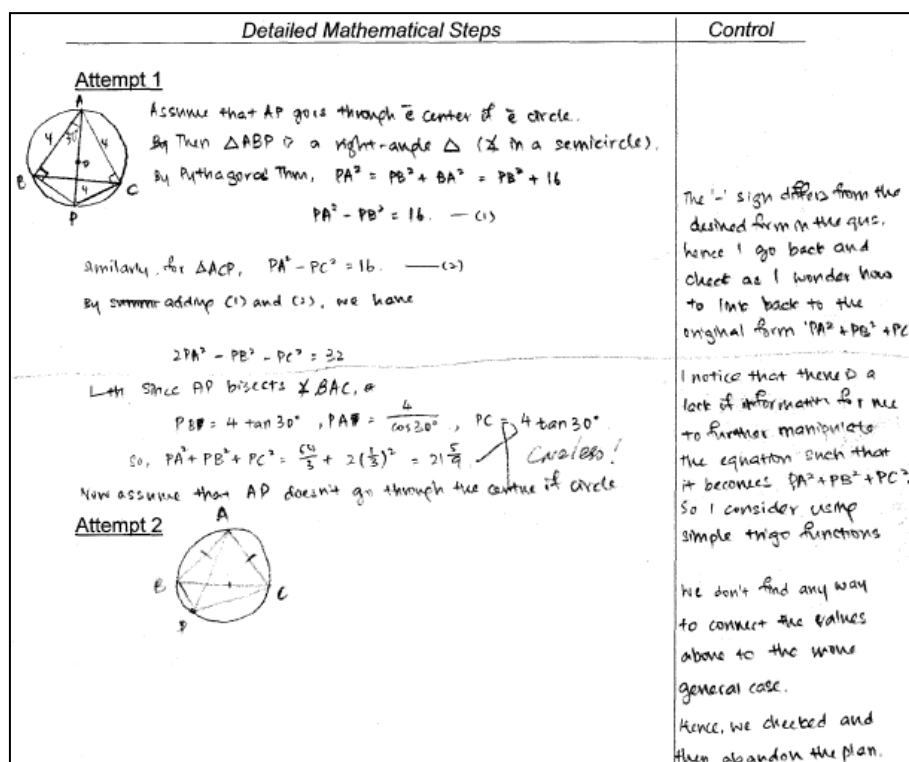 Detailed Mathematical Steps
Control
Attempt 1
A
4
30°
4
O
B
4
C
P
Assume that AP goes through ē center of ē circle.
By Then △ABP is a right-angle △ (∡ in a semicircle).
By Pythagoras Thm, PA² = PB² + BA² = PB² + 16
PA² - PB² = 16. — (1)
Similarly, for △ACP, PA² - PC² = 16. — (2)
By adding (1) and (2), we have
2PA² - PB² - PC² = 32
Since AP bisects ∡BAC,
PB = 4 tan 30°, PA = 4/cos 30°, PC = 4 tan 30°
So, PA² + PB² + PC² = 64/3 + 2(1/3)² = 21 5/9
Careless!
Now assume that AP doesn't go through the centre of circle
Attempt 2
A
B
C
P
The '-' sign differs from the
desired form in the qns.
hence I go back and
check as I wonder how
to link back to the
original form 'PA² + PB² + PC
I notice that there is a
lack of information for me
to further manipulate
the equation such that
it becomes PA² + PB² + PC²
So I consider using
simple trigo functions
We don't find any way
to connect the values
above to the more
general case.
Hence, we checked and
then abandon the plan.